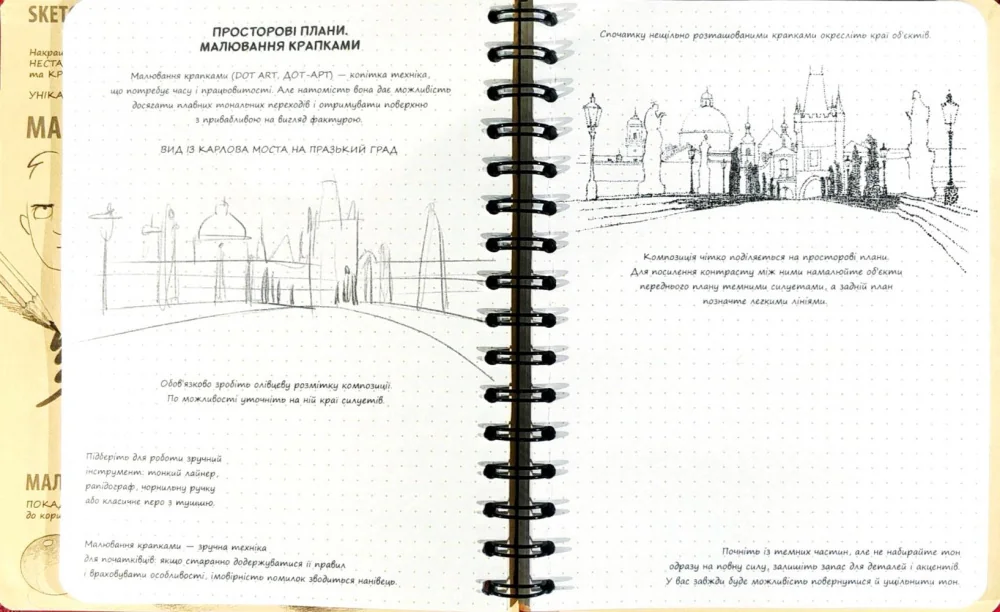 SKET
Накращ
НЕСТА
та КР
УНІКА
МА
МАЛ
ПОКА
до кори
ПРОСТОРОВІ ПЛАНИ.
МАЛЮВАННЯ КРАПКАМИ
Малювання крапками (DOT ART, ДОТ-АРТ) — копітка техніка,
що потребує часу і працьовитості. Але натомість вона дає можливість
досягати плавних тональних переходів і отримувати поверхню
з привабливою на вигляд фактурою.
ВИД ІЗ КАРЛОВА МОСТА НА ПРАЗЬКИЙ ГРАД
Обов'язково зробіть олівцеву розмітку композиції.
По можливості уточніть на ній краї силуетів.
Підберіть для роботи зручний
інструмент: тонкий лайнер,
рапідограф, чорнильну ручку
або класичне перо з тушшю.
Малювання крапками — зручна техніка
для початківців: якщо старанно додержуватися її правил
і враховувати особливості, імовірність помилок зводиться нанівець.
Спочатку нещільно розташованими крапками окресліть краї об'єктів.
Композиція чітко поділяється на просторові плани.
Для посилення контрасту між ними намалюйте об'єкти
переднього плану темними силуетами, а задній план
позначте легкими лініями.
Почніть із темних частин, але не набирайте тон
одразу на повну силу, залишіть запас для деталей і акцентів.
У вас завжди буде можливість повернутися й ущільнити тон.